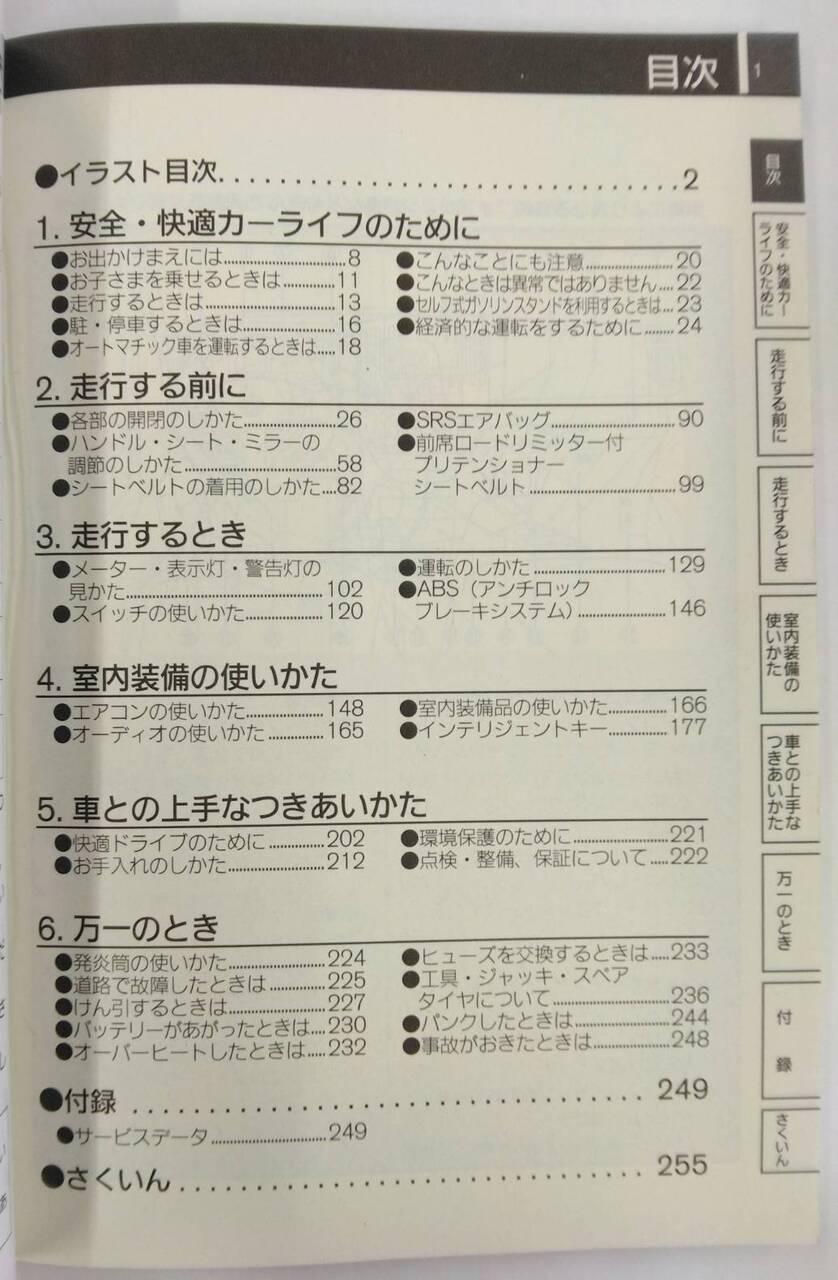 目次
1
●イラスト目次................................2
1. 安全・快適カーライフのために
●お出かけまえには..............................8
●お子さまを乗せるときは..............11
●走行するときは..........................13
●駐・停車するときは..................16
●オートマチック車を運転するときは.....18
●こんなことにも注意....................20
●こんなときは異常ではありません....22
●セルフ式ガソリンスタンドを利用するときは...23
●経済的な運転をするために........24
2. 走行する前に
●各部の開閉のしかた......................26
●ハンドル・シート・ミラーの
調節のしかた....................................58
●シートベルトの着用のしかた....82
●SRSエアバッグ.............................90
●前席ロードリミッター付
プリテンショナー
シートベルト....................................99
3. 走行するとき
●メーター・表示灯・警告灯の
見かた................................................102
●スイッチの使いかた...................120
●運転のしかた................................129
●ABS（アンチロック
ブレーキシステム）........................146
4. 室内装備の使いかた
●エアコンの使いかた...................148
●オーディオの使いかた..............165
●室内装備品の使いかた..............166
●インテリジェントキー..............177
5. 車との上手なつきあいかた
●快適ドライブのために..............202
●お手入れのしかた......................212
●環境保護のために......................221
●点検・整備、保証について.....222
6. 万一のとき
●発炎筒の使いかた......................224
●道路で故障したときは..............225
●けん引するときは......................227
●バッテリーがあがったときは....230
●オーバーヒートしたときは.....232
●ヒューズを交換するときは.....233
●工具・ジャッキ・スペア
タイヤについて............................236
●パンクしたときは......................244
●事故がおきたときは..................248
●付録................................249
●サービスデータ..........................249
●さくいん................................255
目次
安全・快適カー
ライフのために
走行する前に
走行するとき
室内装備の
使いかた
車との上手な
つきあいかた
万一のとき
付録
さくいん